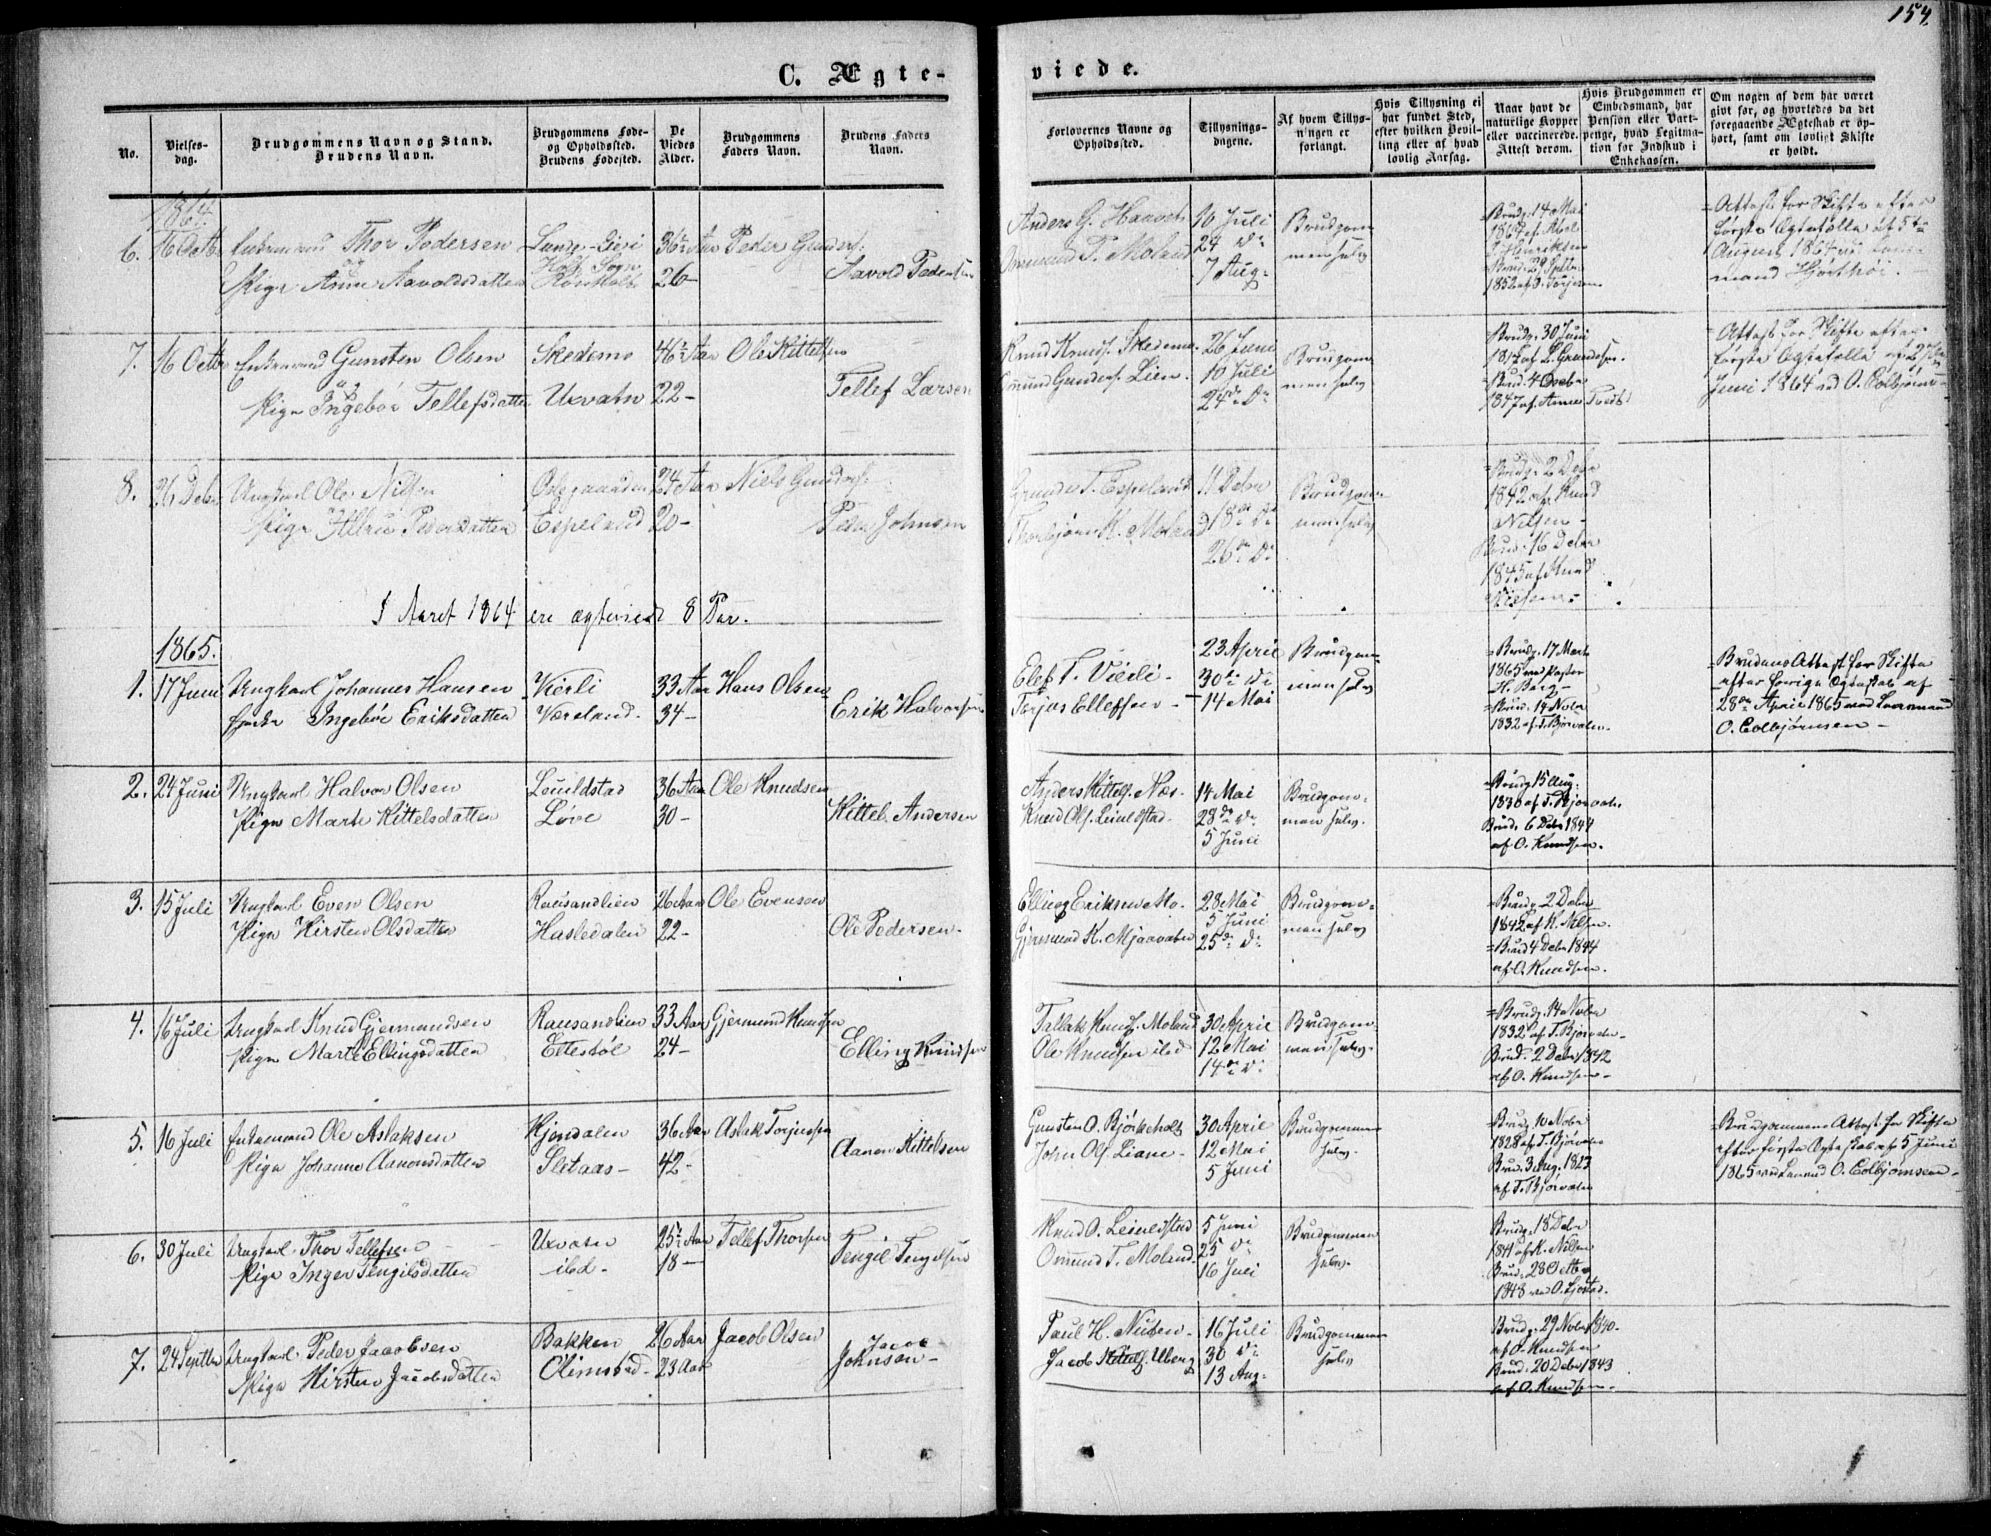 154.
C. Ægte-
viede.
No.
Vielses-
dag.
Brudgommens Navn og Stand.
Brudens Navn.
Brudgommens Føde-
og Opholdssted.
Brudens Fødested.
De
Viedes
Alder.
Brudgommens
Faders Navn.
Brudens Faders
Navn.
Forlovernes Navne og
Opholdssted.
Tillysnings-
dagene.
Af hvem Tillys-
ningen er
forlangt.
Hvis Tillysning ei
har fundet Sted,
efter hvilken Bevil-
ling eller af hvad
lovlig Aarsag.
Naar havt de
naturlige Kopper
eller vaccinerede.
Attest derom.
Hvis Brudgommen er
Embedsmand, har
Pension eller Vart-
penge, hvad Legitima-
tion for Indskud i
Enkekassen.
Om nogen af dem har været
givt før, og hvorledes da det
foregaaende Ægteskab er op-
hørt, samt om lovligt Skifte
er holdt.
1864.
6. 16 Octb Enkemand Thor Pedersen
og
Pige Anne Aavoldsdatter
Holt Sogn
36 Aar
26
Peder Gunders.
Aavold Pedersen
Anders G.
Omund T. Moland
10 Juli
24 De
7 Aug.
Brudgom
men selv
Brudg. 14 Mai
Attest for Skifte efter
første Ægtefælle af 5te
August 1864
7. 16 Octbr Enkemand Gunsten Olsen
og
Pige Ingebor Tellefsdatter
Skedemo
Uxvatn
46 Aar
22 -
Ole Kittelsen
Tellef Larsen
Knud Knuds. Skedemo
Omund Gunders. Lien.
26 Juni
10 Juli
24de De
Brudgom
men selv
Brudg. 30 Juni
Brud. 4 Octbr
1847 af Anne Tveds
Attest for Skifte efter
første Ægtefælle af 2den
Juni 1864 ved O. Colbjørns-
8. 26 Debr Ungkarl Ole Nilsen
Pige Pedersdatter
Espeland
24 Aar
20 -
Niels Gunders.
Peder Johnsen
Gunder T. Espeland
Thorbjørn K. Moland
11 Debr
18de De
26de De
Brudgom
men selv
Brudg. 2 Debr
1842 af Knud
Nilsen -
Brud. 16 Debr
1845 af Knud
Nielsen -
I Aaret 1864 ere ægteviede 8 Par.
1865.
1. 17 Juni Ungkarl Johannes Hansen
Enke Ingebor Eriksdatter
Vierli
Væreland.
33 Aar
34 -
Hans Olsen
Erik Halvorsen
Elef T. Vierli -
Torjus Ellefsen -
23 April
30te De
14 Mai
Brudgom-
men selv
Brudg. 17 Marts
1865 ved Pastor
H. Berg -
Brud. 14 Nobr
1832 af T. Bjørvatn.
Brudens Attest for Skifte
efter forrige Ægteskab af
28de April 1865 ved Lensmand
O. Colbjørnsen -
2. 24 Juni Ungkarl Halvor Olsen
Pige Marte Kittelsdatter
Leuildstad
Løve
36 Aar
30 -
Ole Knudsen
Kittel Andersen
Anders Kittels. Næs.
Knud Ols. Leinildstad.
14 Mai
28de De
5 Juni
Brudgom-
men selv.
Brudg. 15 Aug.
1830 af T. Bjorvatn.
Brud. 6 Debr 1844
af O. Knudsen.
3. 15 Juli Ungkarl Even Olsen
Pige Kirsten Olsdatter
Rausandlien
Hasledalen
26 Aar
22 -
Ole Evensen
Ole Pedersen.
Elling Eriksen Mo.
Gjermund K. Mjaavatn
28 Mai
5 Juni
25de De
Brudgom-
men selv
Brudg. 2 Debr
1842 af K. Nilsen.
Brud 4 Debr 1844
af O. Knudsen.
4. 16 Juli Ungkarl Knud Gjermundsen
Pige Marte Ellingsdatter
Rausandlien
Ettestøl
33 Aar
24 -
Gjermund Knudsen
Elling Knudsen
Tallak Knuds. Moland
Ole Knudsen ibd
30 April
12 Mai
14de De
Brudgom-
men selv.
Brudg. 14 Nobr
1832 af T. Bjorvatn.
Brud. 2 Debr 1842
af O. Knudsen.
5. 16 Juli Enkemand Ole Aslaksen
Pige Johanne Aanonsdatter
Hjøndalen
Sletaas -
36 Aar
42 -
Aslak Torjusen
Aanon Kittelsen
Gunsten O. Bjørkeholt
John Ols. Liane -
30 April
12 Mai
5 Juni
Brudgommen
selv.
Brudg. 10 Nobr
1828 af T. Bjorvatn
Brud. 3 Aug. 1823
af T. Bjorvatn
Brudgommens Attest for Skifte
efter første Ægteskab af 5 Juni
1865 ved Lensmd O. Colbjørnsen -
6. 30 Juli Ungkarl Thor Tellefsen
Pige Inger Tengilsdatter
Uxvatn
ibd -
25 Aar
18 -
Tellef Thorsen
Tengil Tengilsen
Knud O. Leinildstad
Omund T. Moland.
5 Juni
25 De
16 Juli
Brudgommen
selv.
Brudg. 18 Debr
1841 af K. Nilsen
Brud. 28 Octbr
1848 ved O. Fjostad.
7. 24 Septbr Ungkarl Peder Jacobsen
Pige Kirsten Jacobsdatter
Bakken
Olimstad
26 Aar
23 Aar
Jacob Olsen
Jacob
Johnsen -
Paul H. Nuten -
Jacob Kittels. Uberg
16 Juli
30 De
13 Aug.
Brudgommen
selv
Brudg. 29 Nobr 1840.
af O. Knudsen
Brud. 20 Debr 1843
af O. Knudsen -